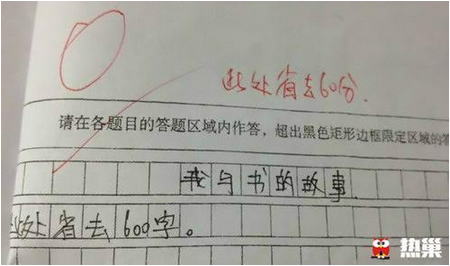 此处省去60分.
请在各题目的答题区域内作答，超出黑色矩形边框限定区域的答
我与书的故事
此处省去600字。
热巢